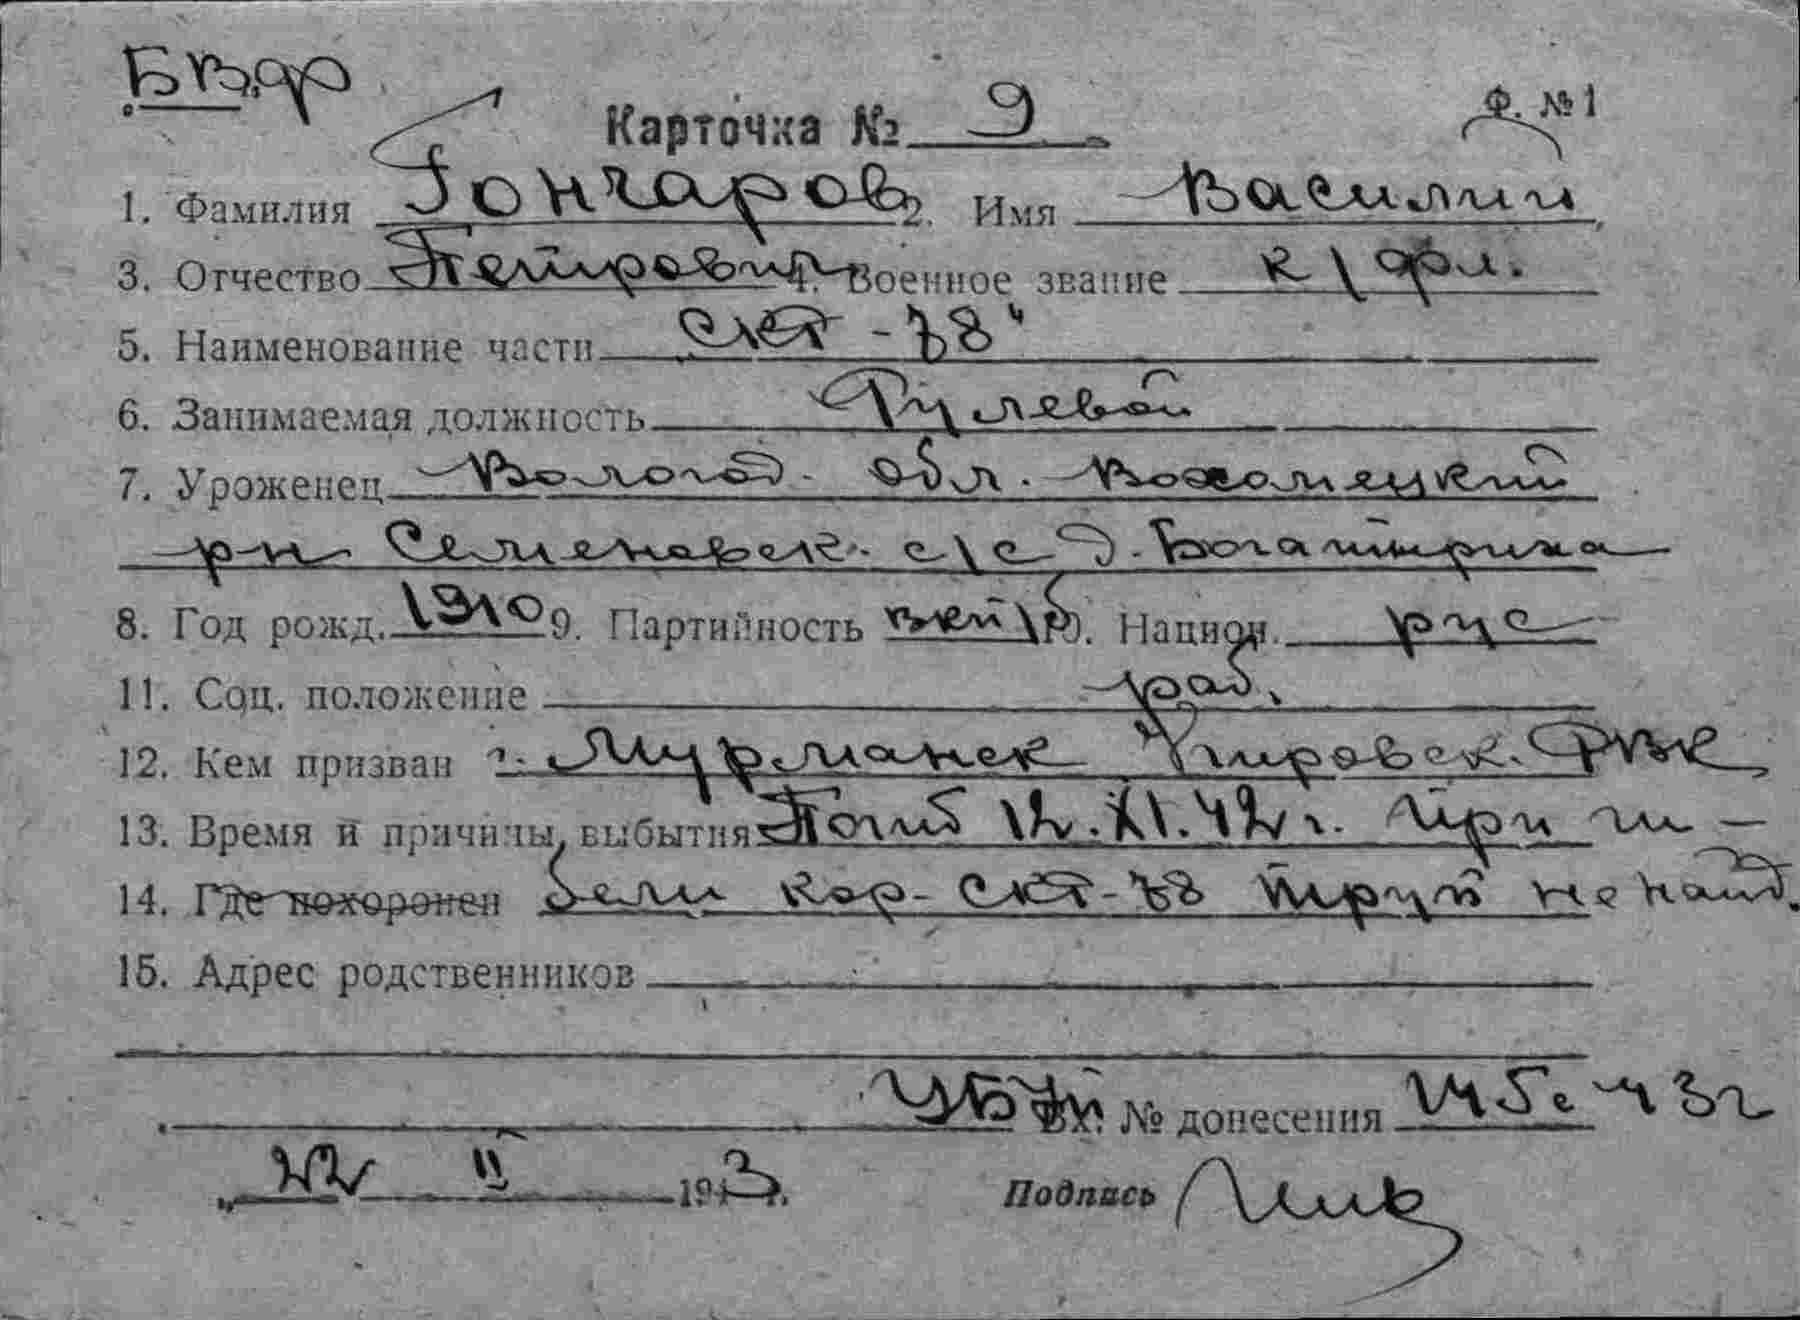 БВФ
Карточка № 9 Ф. № 1
1. Фамилия Гончаров 2. Имя Василий
3. Отчество Петрович 4. Военное звание к/фл.
5. Наименование части СКТ-78"
6. Занимаемая должность Рулевой
7. Уроженец Вологод. обл. Вохомецкий
рн Семеновск. с/с д. Богатыриха
8. Год рожд. 1910 9. Партийность вкп/б 10. Национ. рус
11. Соц. положение раб.
12. Кем призван г. Мурманск Кировск. РВК
13. Время и причины выбытия Погиб 12.XI.42 г. при ги-
14. Где похоронен бели кор. СКТ-78 труп не найд.
15. Адрес родственников
УБП Вх. № донесения 145с 43г
„ 22 II 1943 г. Подпись